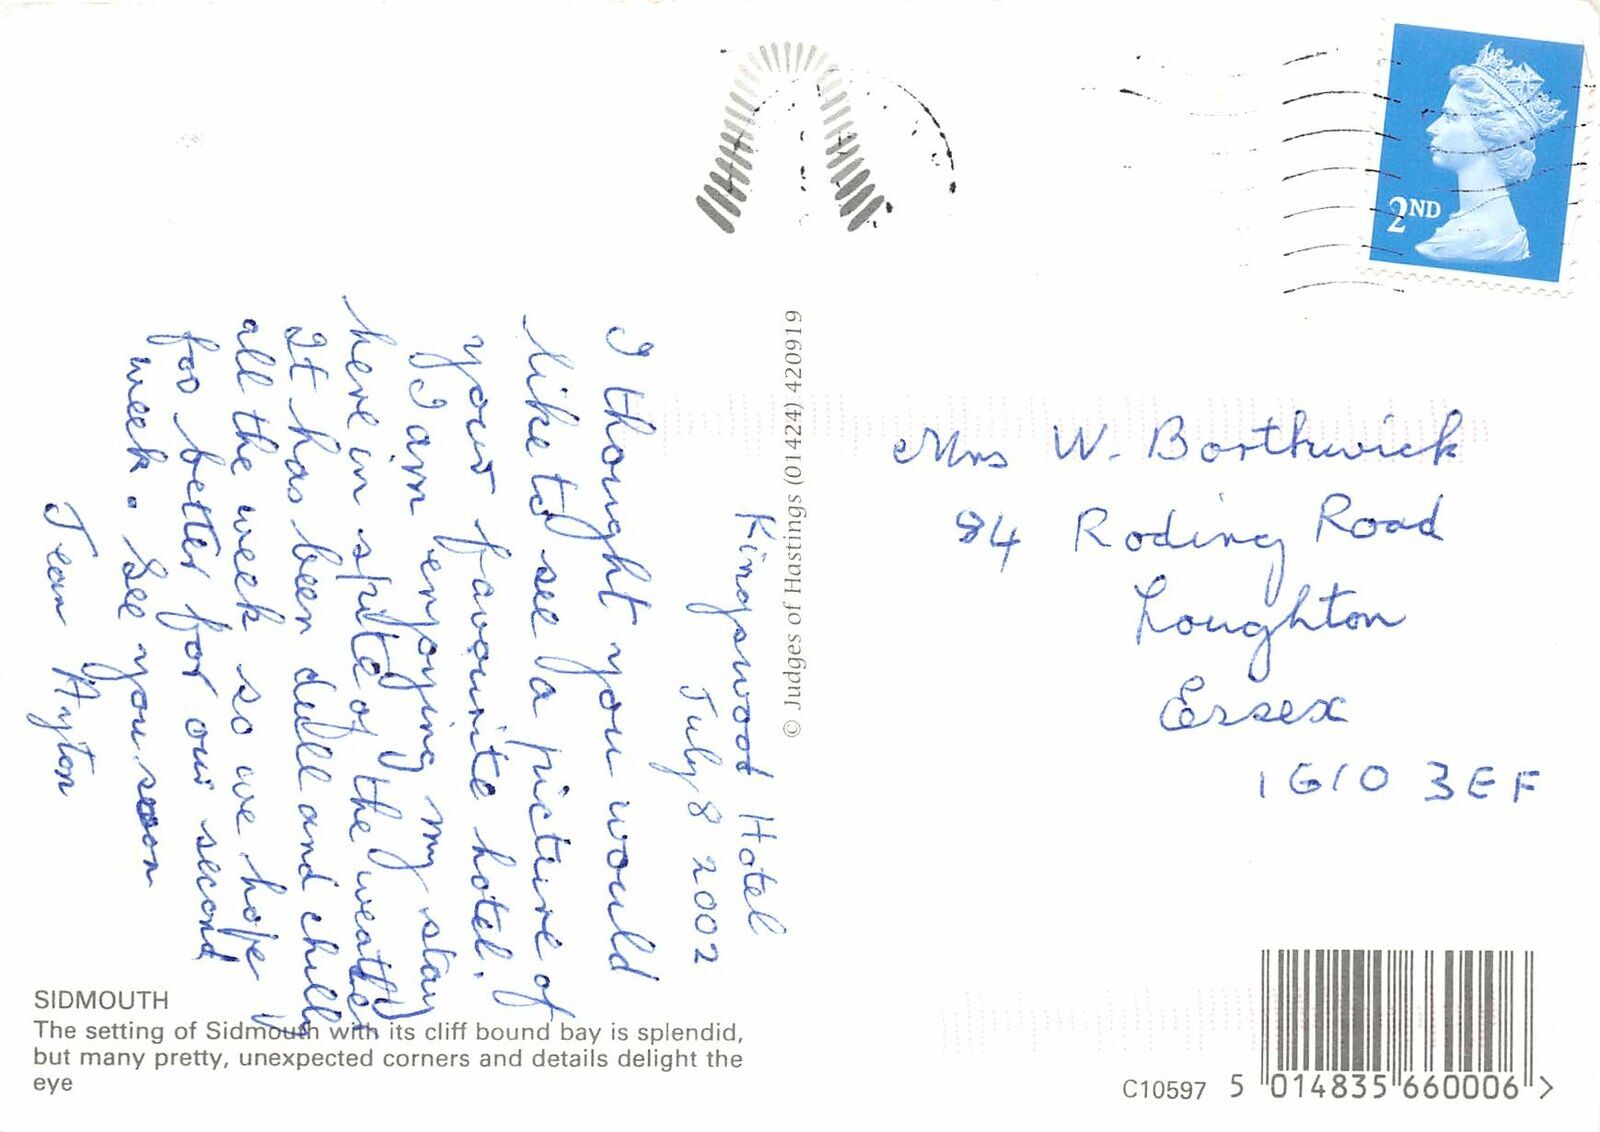 Kingswood Hotel
July 8 2002
I thought you would
like to see a picture of
your favourite hotel.
I am enjoying my stay
here in spite of the weather
It has been dull and chilly
all the week so we hope
for better for our second
week. See you soon
Jean Ayton
SIDMOUTH
The setting of Sidmouth with its cliff bound bay is splendid,
but many pretty, unexpected corners and details delight the
eye
© Judges of Hastings (01424) 420919
2ND
Mrs W. Borthwick
84 Roding Road
Loughton
Essex
IG10 3EF
C10597 5 014835 660006 >